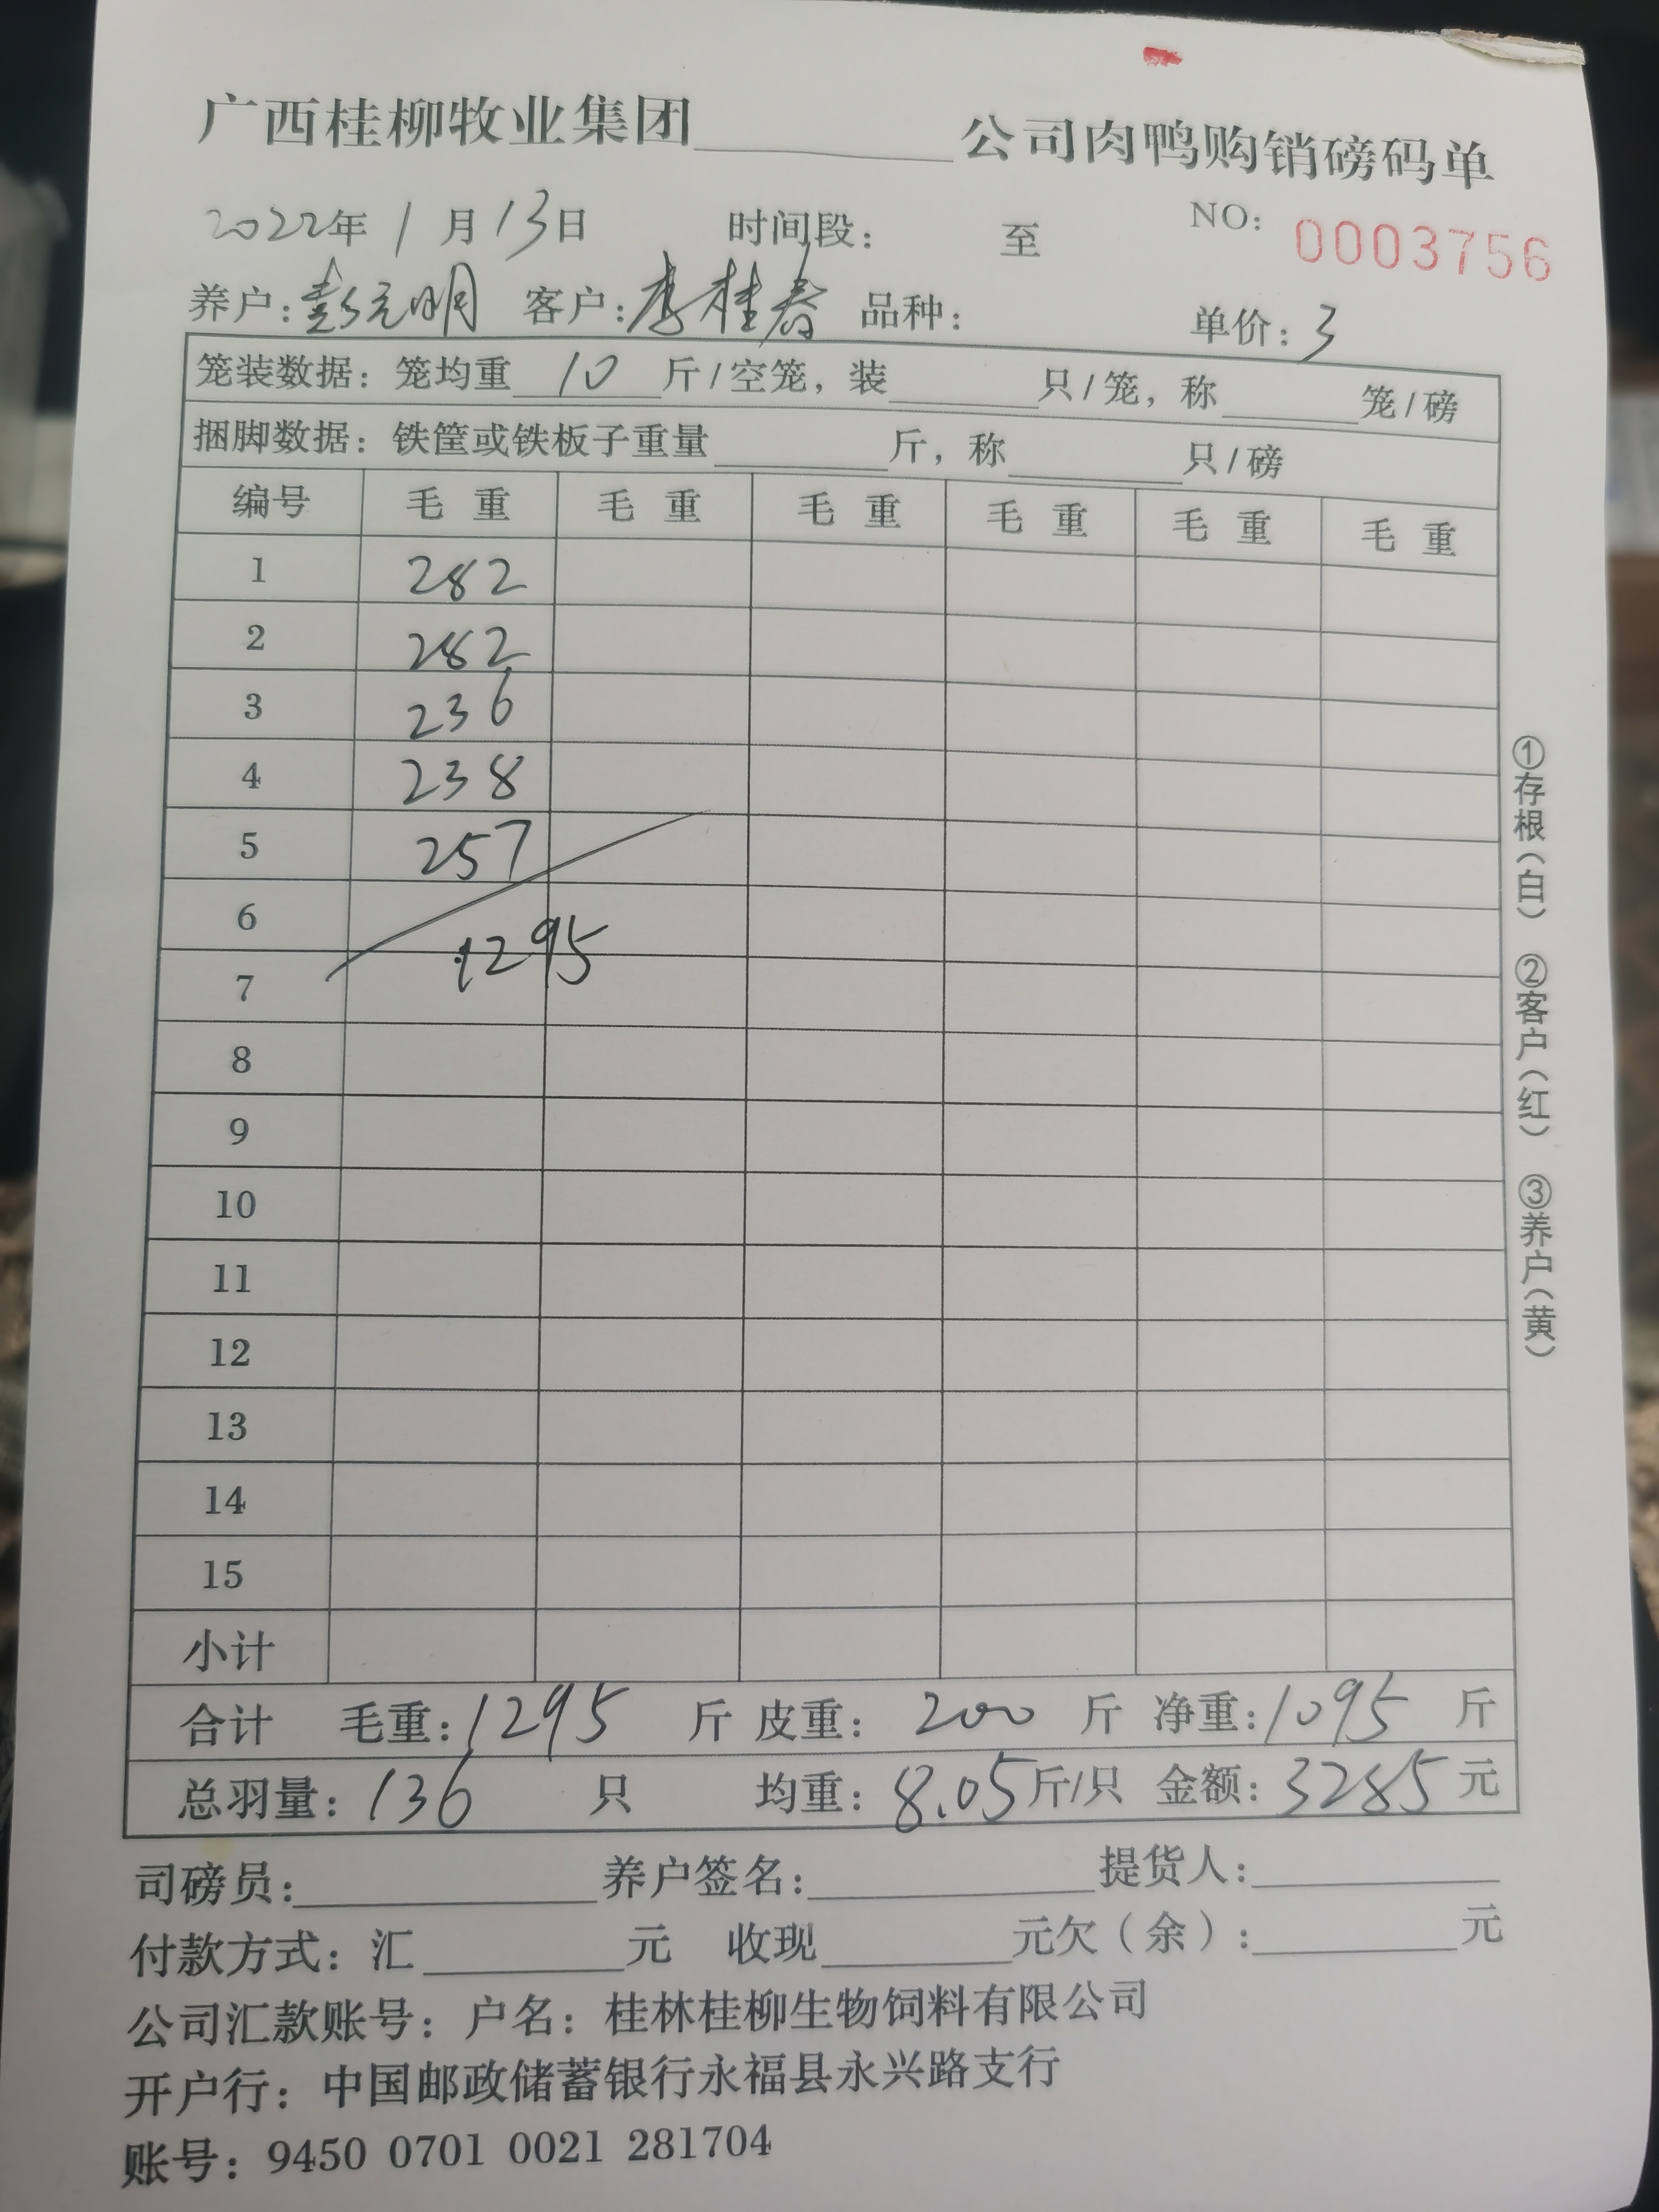 广西桂柳牧业集团________公司肉鸭购销磅码单
2022年 1 月 13日 时间段： 至 NO：0003756
养户：彭元明 客户：李桂春 品种： 单价：3
笼装数据：笼均重 10 斤/空笼，装______只/笼，称______笼/磅
捆脚数据：铁筐或铁板子重量______斤，称______只/磅
编号 毛重 毛重 毛重 毛重 毛重 毛重
1 282
2 282
3 236
4 238
5 257
6
1295
7
8
9
10
11
12
13
14
15
小计
合计 毛重：1295 斤 皮重：200 斤 净重：1095 斤
总羽量：136 只 均重：8.05斤/只 金额：3285元
司磅员：________养户签名：________提货人：________
付款方式：汇______元 收现______元欠（余）：______元
公司汇款账号：户名：桂林桂柳生物饲料有限公司
开户行：中国邮政储蓄银行永福县永兴路支行
账号：9450 0701 0021 281704
①存根（白） ②客户（红） ③养户（黄）